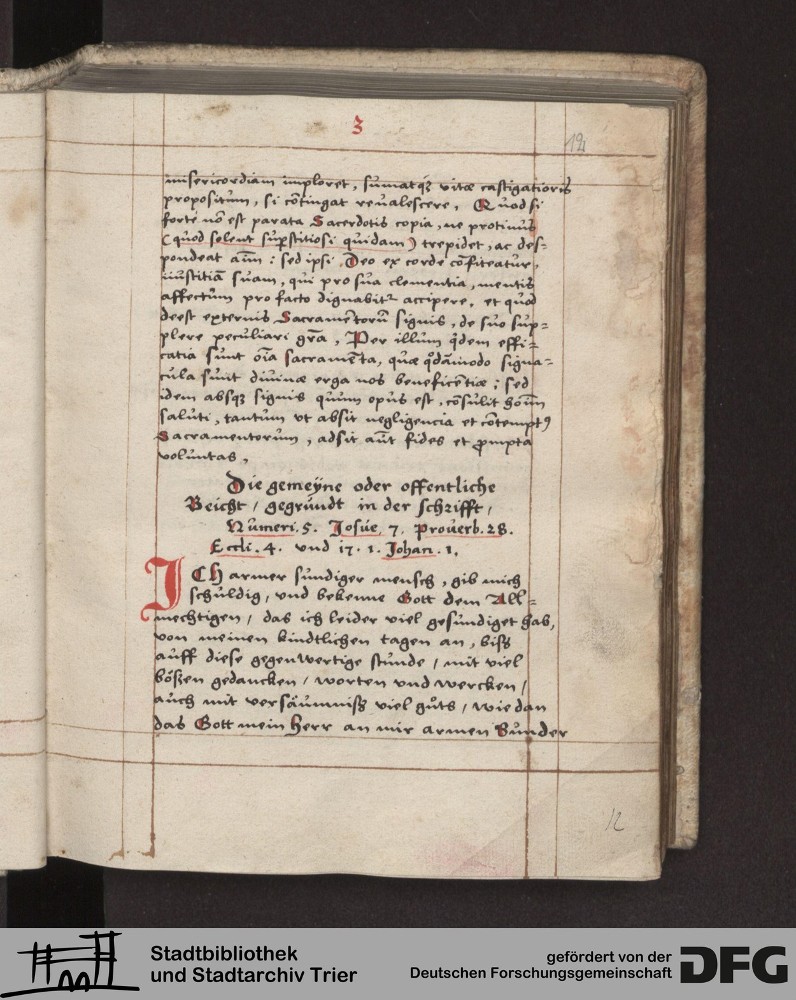 3
12
misericordiam imploret, sumatq́ȝ vitæ castigatioris
propositum, si cōtingat reualescere. Quod si
forte nō est parata Sacerdotis copia, ne protinus
(quod solent supstitiosi quidam) trepidet, ac des-
pondeat aīm: sed ipsi Deo ex corde cōfiteatur,
iniustitiā suam, qui pro sua clementia, mentis
affectum pro facto dignabitr accipere, et quod
deest externis Sacramētorū signis, de suo sup=
plere peculiari grā, Per illum q̇dem effi-
catia sunt oīa sacramēta, quæ q̇dāmodo signa=
cula sunt diuinæ erga nos beneficētiæ; sed
idem absqȝ signis quum opus est, cōsulit hoīm
saluti, tantum vt absit negligencia et cōtempt9
Sacramentorum, adsit aūt fides et prompta
voluntas.
Die gemeÿne oder offentliche
Beicht / gegründt in der schrifft,
Numeri. 5. Josue. 7. Prouerb. 28.
Eccli. 4. vnd 17. 1. Johan. 1.
ICH armer sundiger mensch, gib mich
schuldig, vnd bekenne Gott dem All=
mechtigen / das ich leider viel gesundiget hab,
von meinen kindtlichen tagen an, biß
auff diese gegenwertige stunde / mit viel
bösten gedancken / worten vnd wercken /
auch mit versäumniß viel guts / wie dan
das Gott mein Herr an mir armen Sunder
12
Stadtbibliothek
und Stadtarchiv Trier
gefördert von der
Deutschen Forschungsgemeinschaft
DFG